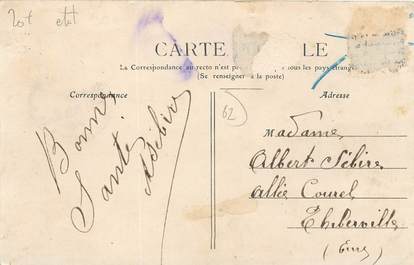 CARTE LE
La Correspondance au recto n'est pas
ous les pays étrang
(Se renseigner à la poste)
Correspondance
Adresse
62
Bonne
Santé
ASébire
Madame
Albert Sébire
Allée Courel
Thiberville
(Eure)